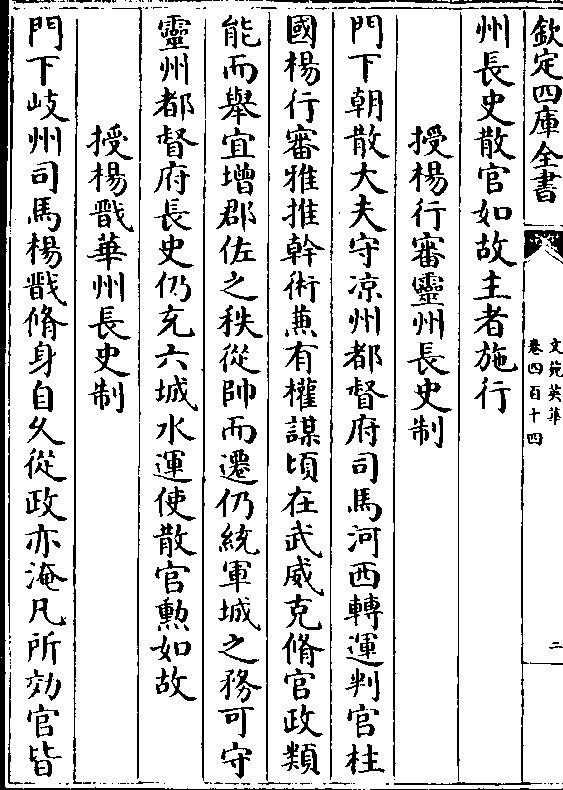 欽定四庫全書
文苑英華
卷四百十四
二
州長史散官如故主者施行
授楊行審靈州長史制
門下朝散大夫守凉州都督府司馬河西轉運判官柱
國楊行審雅推幹術兼有權謀頃在武威克脩官政類
能而舉宜增郡佐之秩從帥而遷仍統軍城之務可守
靈州都督府長史仍充六城水運使散官勲如故
授楊戬華州長史制
門下岐州司馬楊戬脩身自久從政亦淹凡所効官皆